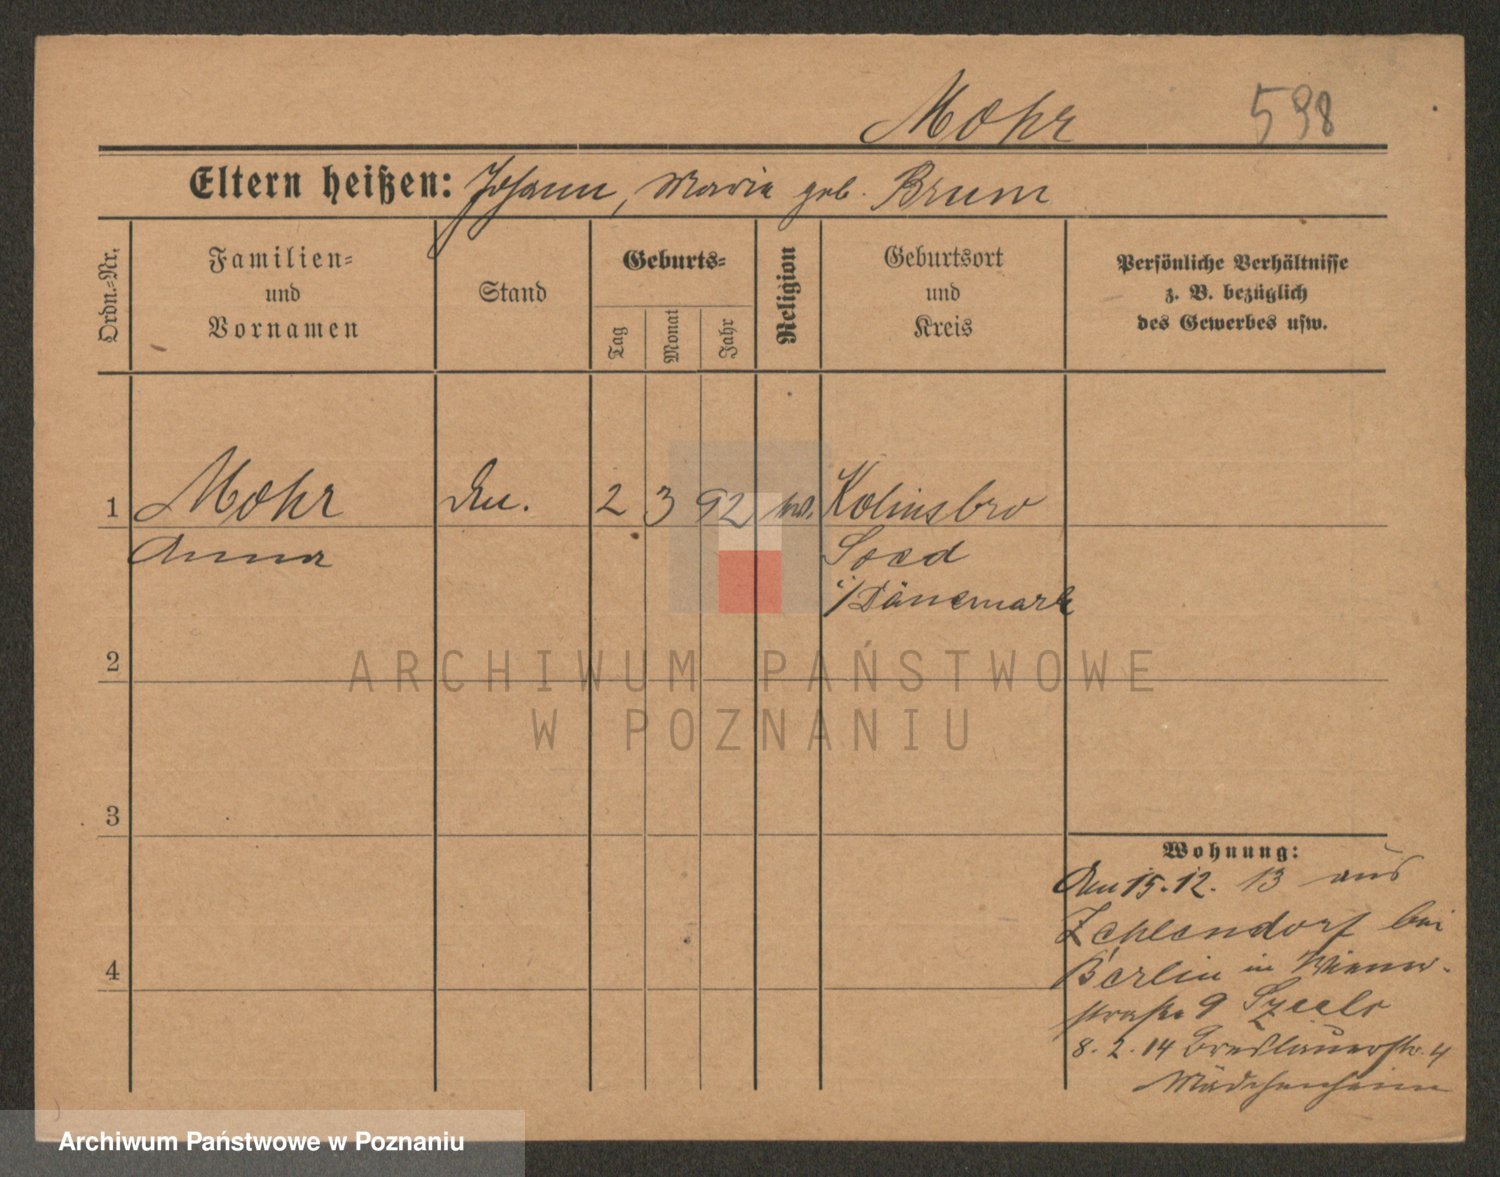 Mohr 598
Eltern heißen: Johann, Maria geb. Brum
Ordn.-Nr.
Familien-
und
Vornamen
Stand
Geburts-
Tag
Monat
Jahr
Religion
Geburtsort
und
Kreis
Persönliche Verhältnisse
z. B. bezüglich
des Gewerbes usw.
1 Mohr 2 3 92 Kolinsbro
Anna Soed
i/Dänemark
2
3
4
Wohnung:
Den 15.12. 13 aus
Zehlendorf bei
Berlin in
straße 9
8. 2. 14 Breslauerstr. 4
Mädchenheim
ARCHIWUM PAŃSTWOWE
W POZNANIU
Archiwum Państwowe w Poznaniu